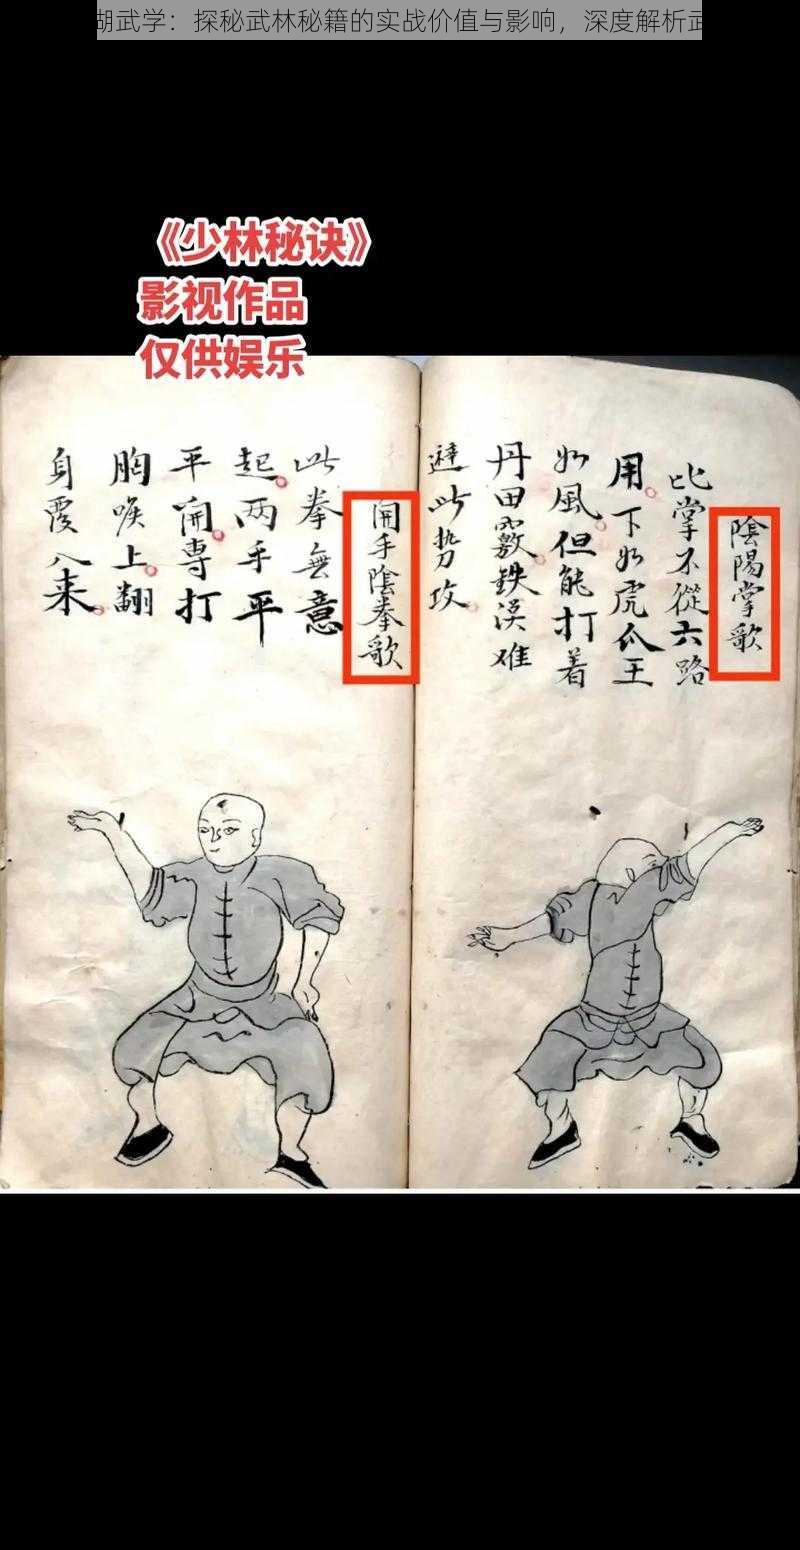 湖武学：探秘武林秘籍的实战价值与影响，深度解析武
《少林秘诀》
影视作品
仅供娱乐
陰陽掌歌
比掌不從六路
用下如虎爪王
如風但能打着
丹田竅铁漢难
避此勢攻
開手陰拳歌
此拳無意
起两手平
平開專打
胸喉上翻
身覆入来